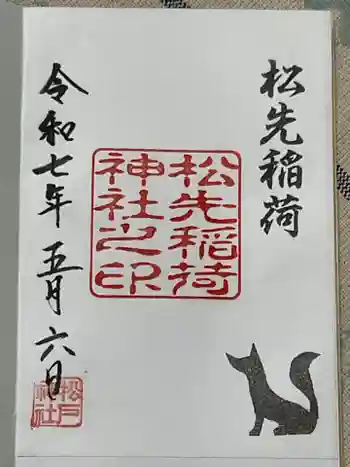 松先稲荷
松先稲荷
神社之印
令和七年 五月 六日
松戸
神社